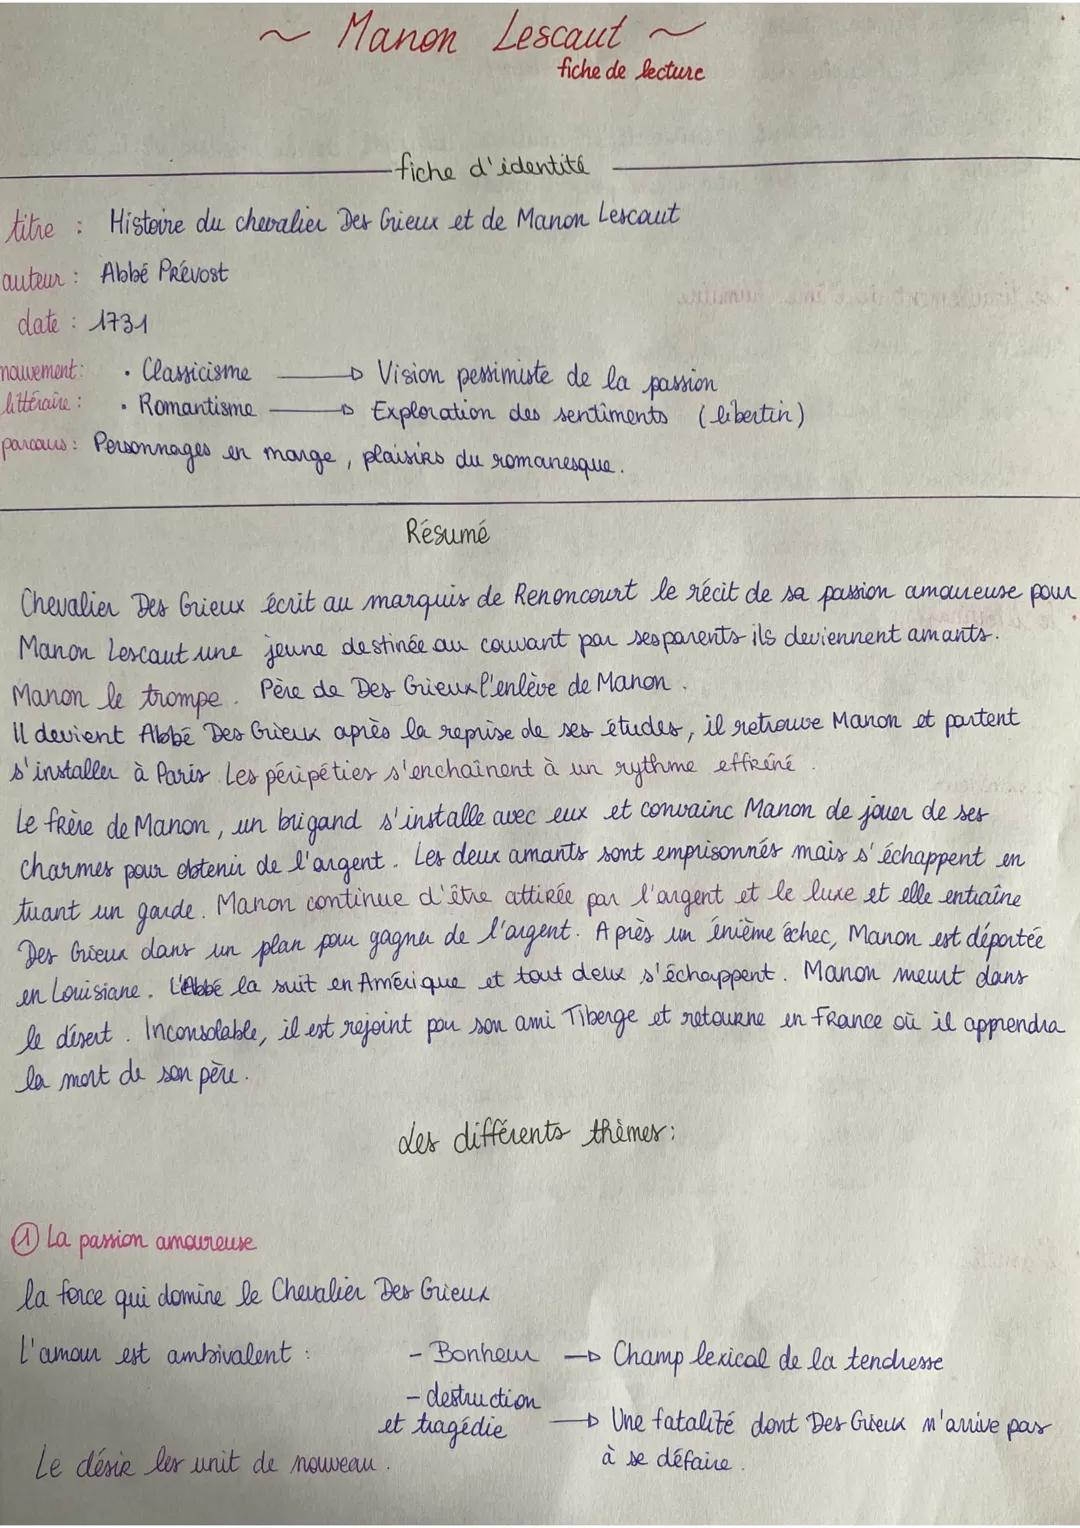 ~ Manon Lescaut ~
fiche de lecture
fiche d'identité
titre : Histoire du chevalier Des Grieux et de Manon Lescaut
auteur : Abbé Prévost
date : 1731
mouvement: • Classicisme → Vision pessimiste de la passion
littéraire : • Romantisme → Exploration des sentiments (libertin)
parcours : Personnages en marge, plaisirs du romanesque.
Résumé
Chevalier Des Grieux écrit au marquis de Renoncourt le récit de sa passion amoureuse pour
Manon Lescaut une jeune destinée au couvant par ses parents ils deviennent amants.
Manon le trompe. Père de Des Grieux l'enlève de Manon.
Il devient Abbé Des Grieux après la reprise de ses études, il retrouve Manon et partent
s'installer à Paris. Les péripéties s'enchaînent à un rythme effréné.
Le frère de Manon, un brigand s'installe avec eux et convainc Manon de jouer de ses
charmes pour obtenir de l'argent. Les deux amants sont emprisonnés mais s'échappent en
tuant un garde. Manon continue d'être attirée par l'argent et le luxe et elle entraîne
Des Grieux dans un plan pour gagner de l'argent. Après un énième échec, Manon est déportée
en Louisiane. L'Abbé la suit en Amérique et tout deux s'échappent. Manon meurt dans
le désert. Inconsolable, il est rejoint par son ami Tiberge et retourne en France où il apprendra
la mort de son père.
Les différents thèmes :
① La passion amoureuse
la force qui domine le Chevalier Des Grieux
L'amour est ambivalent : - Bonheur → Champ lexical de la tendresse
- destruction
et tragédie → Une fatalité dont Des Grieux n'arrive pas
à se défaire.
Le désir les unit de nouveau.